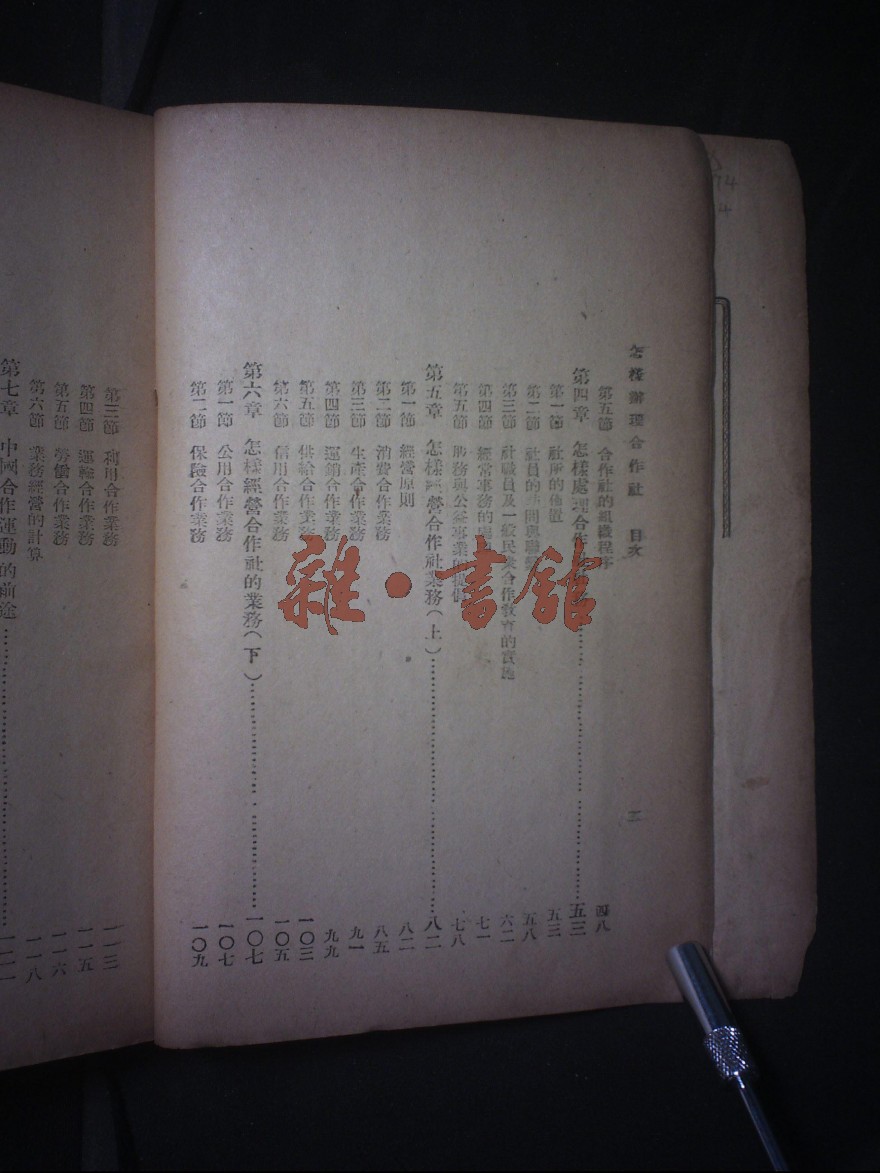 怎樣辦理合作社 目次
二
第五節 合作社的組織程序 四八
第四章 怎樣處理合作 五三
第一節 社所的佈置 五三
第二節 社員的 五八
第三節 社職員及一般民衆合作教育的實施 六二
第四節 經常事務的 七一
第五節 與公益事業的提倡 七八
第五章 怎樣經營合作社業務(上) 八二
第一節 經營原則 八二
第二節 消費合作業務 八五
第三節 生產合作業務 九一
第四節 運銷合作業務 九九
第五節 供給合作業務 一〇三
第六節 信用合作業務 一〇五
第六章 怎樣經營合作社的業務(下) 一〇七
第一節 公用合作業務 一〇七
第二節 保險合作業務 一〇九
第三節 利用合作業務 一一三
第四節 運輸合作業務 一一五
第五節 勞働合作業務 一一六
第六節 業務經營的計算 一一八
第七章 中國合作運動的前途
雜·書舘